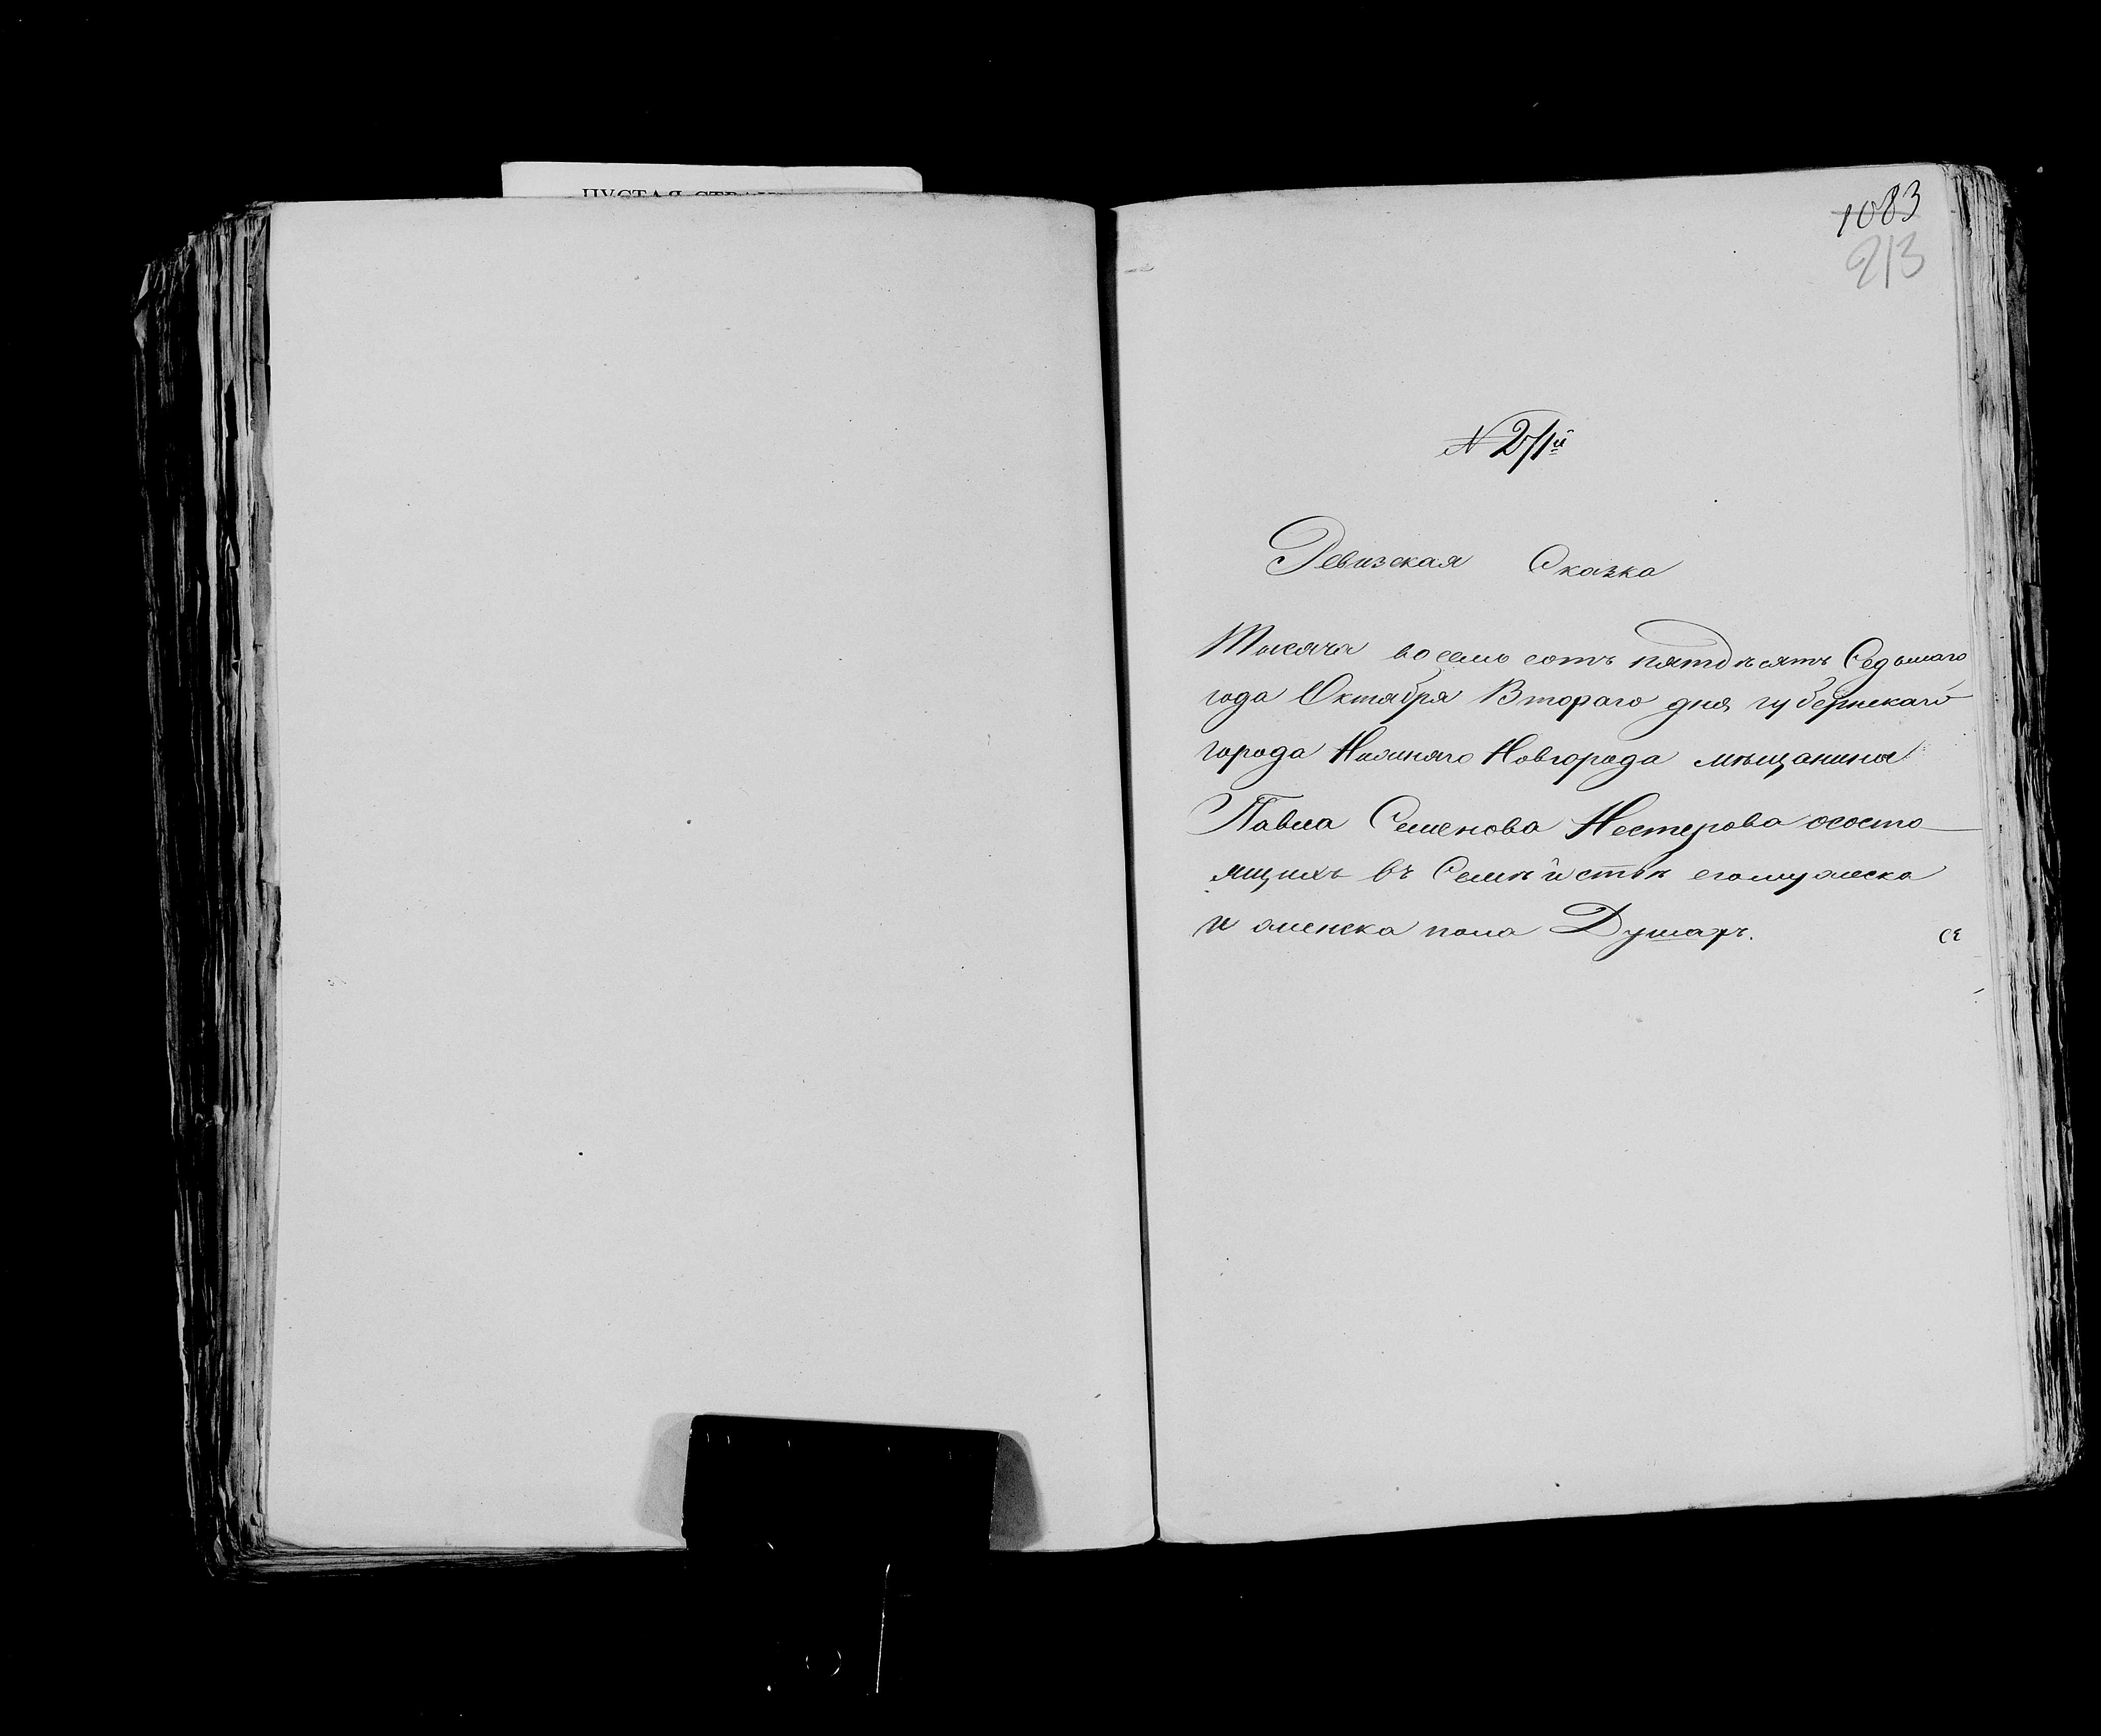 ПУСТАЯ СТРАН
1083
213
N 271й
Ревизская Сказка
Тысяча восемь сотъ пятдѣсятъ Седьмаго
года Октября Втораго дня губернскаго
города Нижняго Новгорода мѣщанина
Павла Семенова Нестерова осостo
ящихъ въ Семѣйствѣ егомужеска
и женска пола Душахъ.